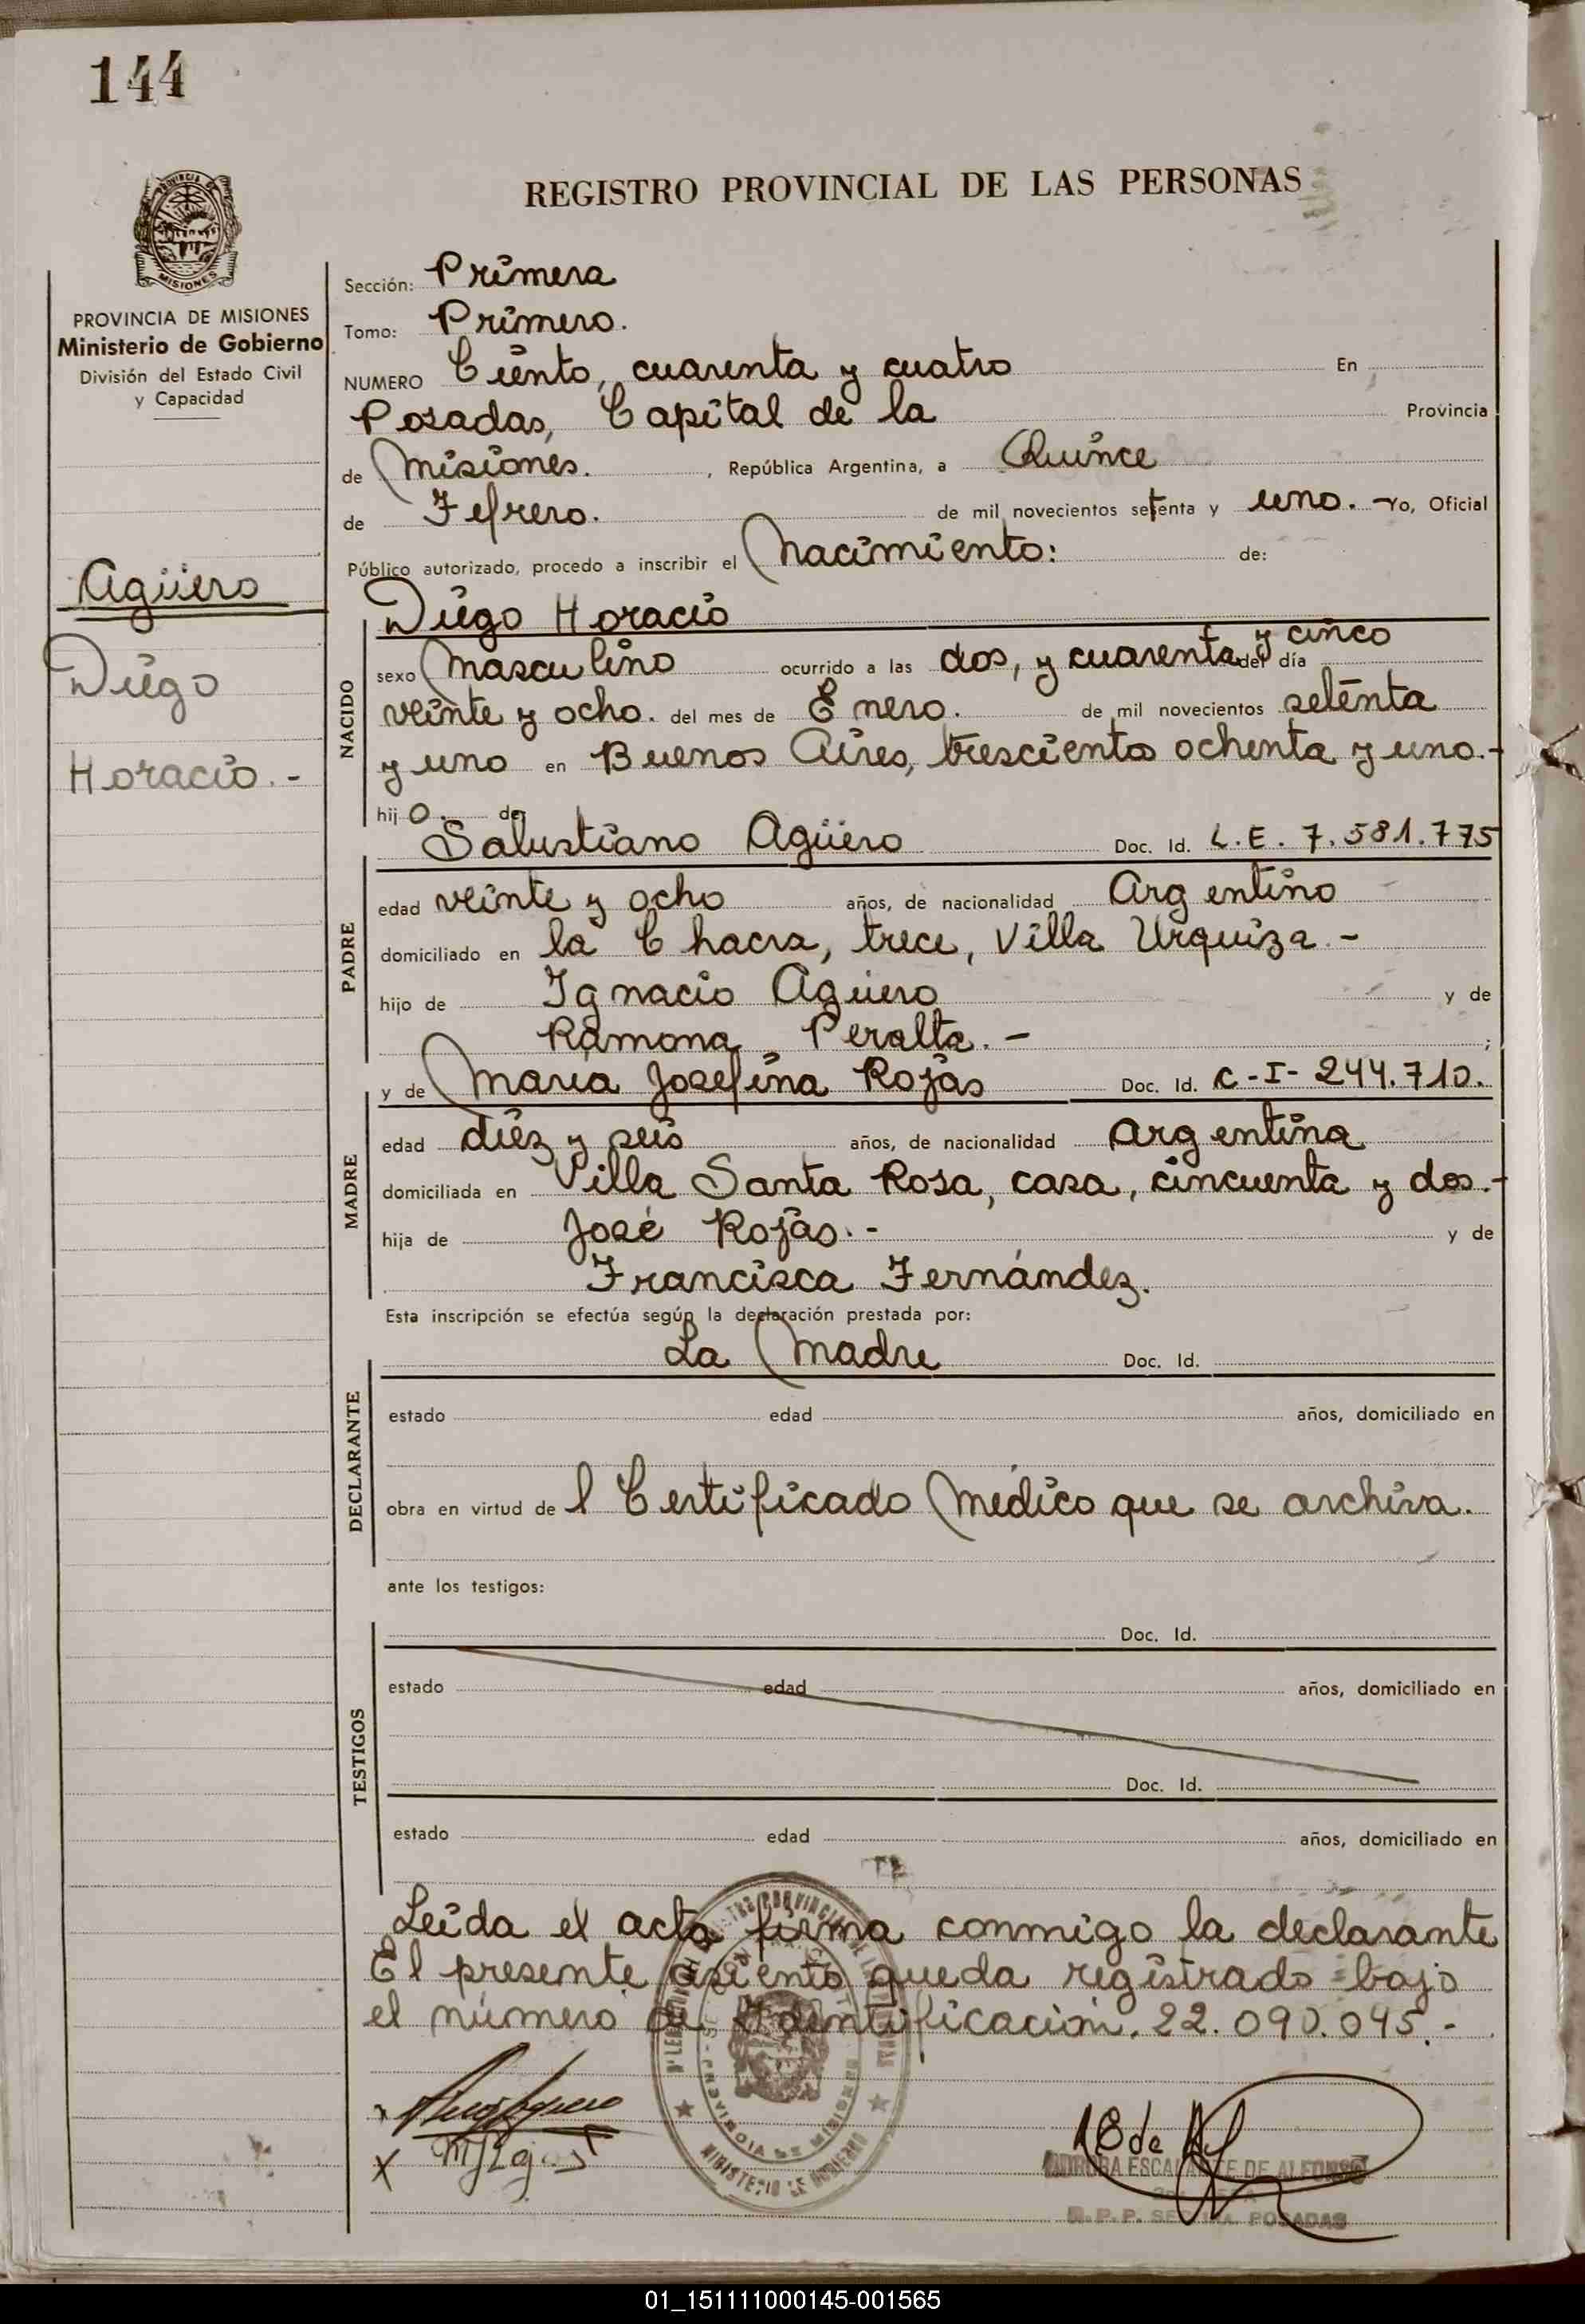 144
REGISTRO PROVINCIAL DE LAS PERSONAS
PROVINCIA DE MISIONES
Ministerio de Gobierno
División del Estado Civil
y Capacidad
Agüero
Diego
Horacio.-
Sección: Primera
Tomo: Primero.
NUMERO Ciento, cuarenta y cuatro En
Posadas, Capital de la Provincia
de Misiones. , República Argentina, a Quince
de Fefrero. de mil novecientos setenta y uno. Yo, Oficial
Público autorizado, procedo a inscribir el Nacimiento: de:
Diego Horacio
NACIDO
sexo Masculino ocurrido a las dos, y cuarenta y cinco del día
veinte y ocho. del mes de Enero. de mil novecientos setenta
y uno en Buenos Aires, trescientos ochenta y uno.-
hijo. de
Salustiano Agüero Doc. Id. L.E. 7.581.775
PADRE
edad veinte y ocho años, de nacionalidad Argentino
domiciliado en la Chacra, trece, Villa Urquiza.-
hijo de Ignacio Agüero y de
Ramona Peralta.- ;
y de María Josefina Rojas Doc. Id. C-I- 244.710.
MADRE
edad diez y seis años, de nacionalidad Argentina
domiciliada en Villa Santa Rosa, casa, cincuenta y dos.-
hija de José Rojas.- y de
Francisca Fernández.
Esta inscripción se efectúa según la declaración prestada por:
La Madre Doc. Id.
DECLARANTE
estado edad años, domiciliado en
obra en virtud del Certificado Médico que se archiva.
ante los testigos:
Doc. Id.
TESTIGOS
estado edad años, domiciliado en
Doc. Id.
estado edad años, domiciliado en
Leída el acta firma conmigo la declarante
El presente asiento queda registrado bajo
el número de Identificación. 22.090.045.-
PROVINCIA DE MISIONES
MINISTERIO DE GOBIERNO
ESCALANTE DE ALFONSO
R.P.P. POSADAS
01_151111000145-001565